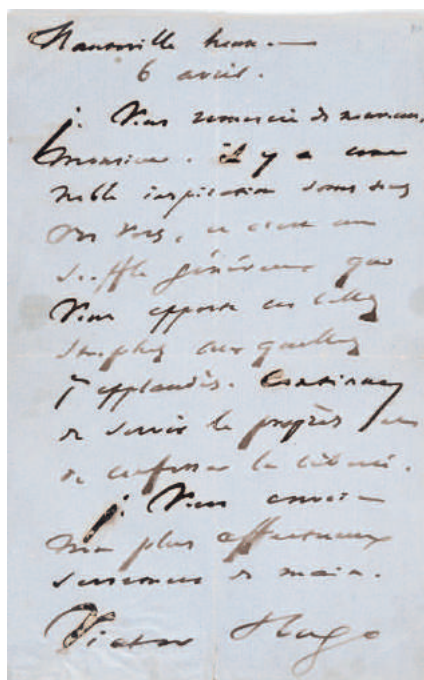 Hauteville house. —
6 avril.
je Vous remercie de nouveau,
Monsieur. il y a une
noble inspiration dans tous
vos vers, et c'est un
souffle généreux que
Vous apporte ces belles
strophes auxquelles
j'applaudis. Continuez
de servir le progrès et
de confesser la liberté.
je Vous envoie
mon plus affectueux
serrement de main.
Victor Hugo